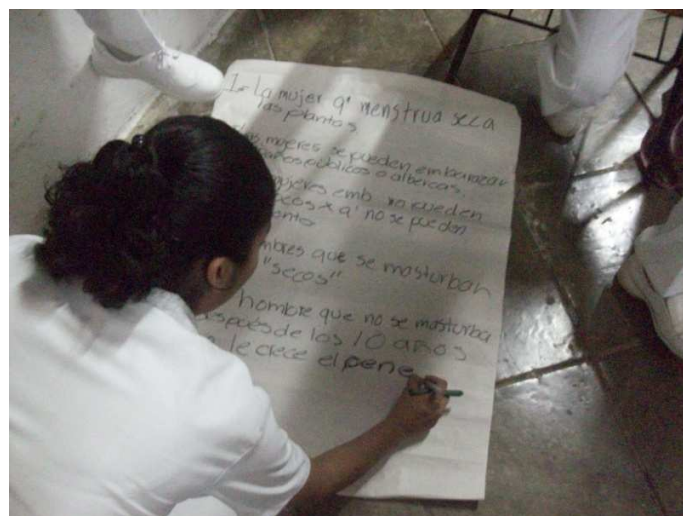 1- La mujer q' menstrua seca
las plantas
mujeres se pueden embarazar
publicos o albercas.
mujeres emb no pueden
x q' no se pueden
que se masturban
"secos"
hombre que no se masturba
después de los 10 años
le crece el pene